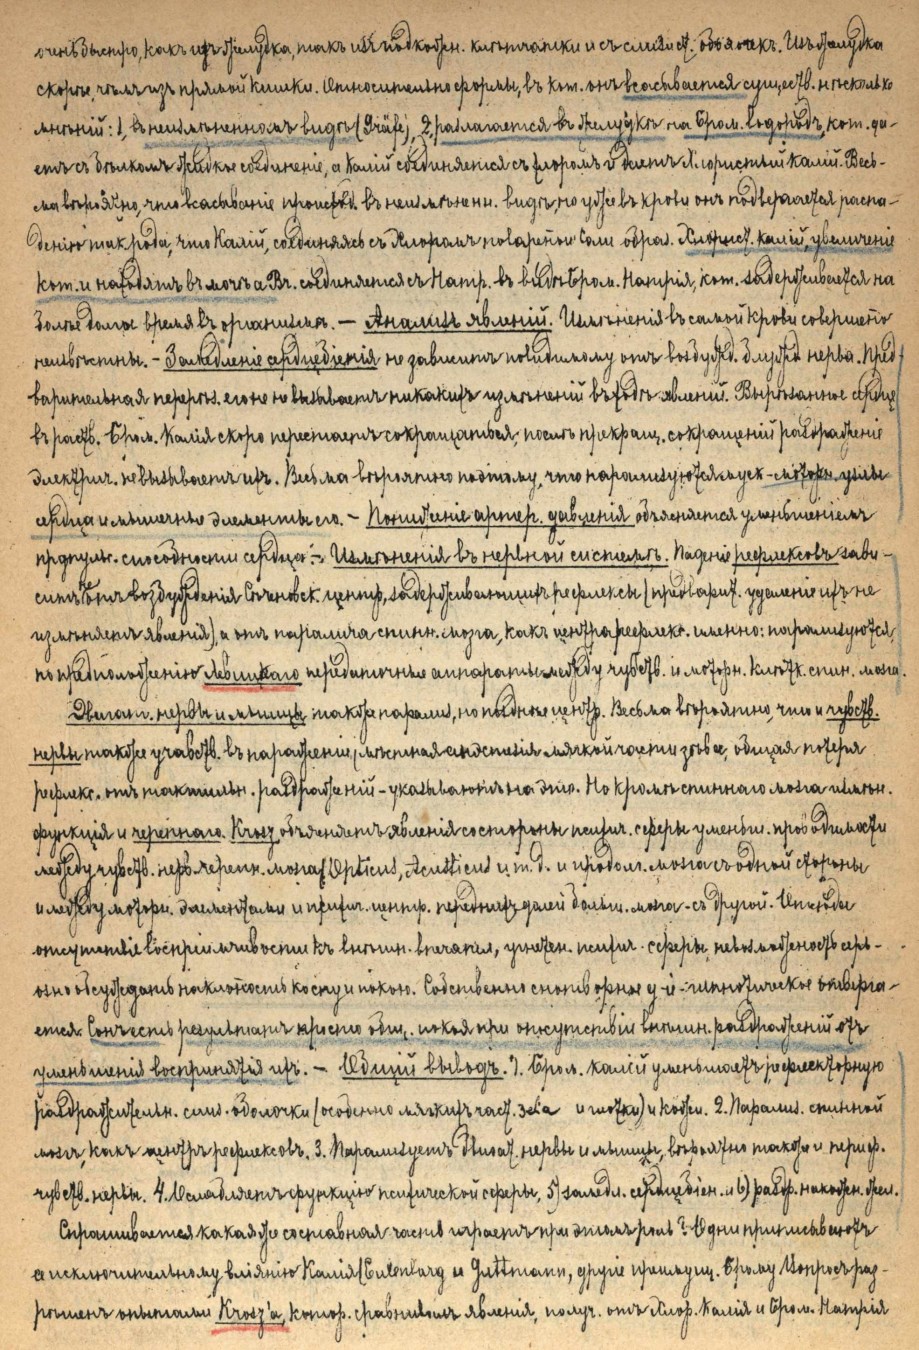 очень быстро, какъ изъ желудка, такъ изъ подкожн. клѣтчатки и съ слизист. оболочекъ. Изъ желудка
скорѣе, чѣмъ изъ прямой кишки. Относительно формы, въ кот. онъ всасывается существ. нѣсколько
мнѣній: 1, въ неизмѣненномъ видѣ (Gräfe), 2, разлагается въ желудкѣ на Бром. водородъ, кот. да-
етъ съ бѣлкомъ жидкое соединеніе, а Калій соединяется съ хлоромъ и даетъ Хлористый калій. Весь-
ма вѣроятно, что всасываніе происход. въ неизмѣненн. видѣ, но уже въ крови онъ подвергается распа-
денію такъ рода, что Калій, соединяясь съ Хлоромъ поварейой Соли образ. Хлорист. калій, увеличеніе
кот. и находятъ въ мочѣ а Br. соединяется съ Натр. въ видѣ Бром. Натрія, кот. задерживается на
болѣе долгое время въ организмѣ. — Анализъ явленій. Измѣненія въ самой крови совершенно
неизвѣстны. - Замедленіе сердцебіенія не зависитъ повидимому отъ возбужд. блужд. нерва. Пред
варительная перерѣз. его не вызываетъ никакихъ измѣненій въ ходѣ явленій. Вырѣзанное сердце
въ раств. Бром. Калія скоро перестаетъ сокращаться; послѣ прекращ. сокращеній раздраженіе
электрич. не вызываетъ ихъ. Весьма вѣроятно поэтому, что парализуются муск-моторн. узлы
сердца и мышечные элементы его. - Пониженіе артер. давленія объясняется уменьшеніемъ
пропульс. способности сердца. - Измѣненія въ нервной системѣ. Паденіе рефлексовъ зави-
ситъ не отъ возбужденія Сѣченовск. центр, задерживающихъ рефлексы (предварит. удаленіе ихъ не
измѣняетъ явленія), а отъ паралича спинн. мозга, какъ центра рефлекс. именно: парализуются,
по предположенію Левицкаго передаточные аппараты между чувств. и моторн. клѣтк. спин. мозга.
Двигат. нервы и мышцы также парализ, но позднѣе центр. Весьма вѣроятно, что и чувств.
нервы также участв. въ пораженіи; мѣстная анэстезія мягкой части зѣва, общая потеря
рефлекс. отъ тактильн. раздраженій - указываютъ на это. Но кромѣ спиннаго мозга измѣн.
функція и черепнаго. Krosz объясняетъ явленія со стороны психич. сферы уменьш. проводимости
между чувств. нерв. черепн. мозга (Opticus, Acusticus и т.д. и продолг. мозга съ одной стороны
и между моторн. элементами и психич. центр. переднихъ долей больш. мозга - съ другой. Отсюда
отсутствіе воспріимчивости къ внѣшн. впечатл, угнетен. психич. сферы, невозможность серь-
озно обсуждать наклонность ко сну и покою. Собственно снотворное у-ій-гипнотическое отверга-
ется. Сонъ есть результатъ просто общ. покоя при отсутствіи внѣшн. раздраженій отъ
уменьшенія воспринятія ихъ. — Общій выводъ. 1. Бром. калій уменьшаетъ рефлекторную
раздражительн. слиз. оболочки (особенно мягкихъ част. зѣва и глотки) и кожи. 2. Парализ. спинной
мозгъ, какъ центръ рефлексовъ. 3. Парализуетъ двигат. нервы и мышцы, вѣроятно также и периф.
чувств. нервы. 4. Ослабляетъ функцію психической сферы, 5) замедл. сердцебіен. и 6) раздр. накожн. жел.
Спрашивается какая же составная часть играетъ при этомъ роль? Одни приписываютъ
ее исключительному вліянію Калія (Eulenburg и Guttmann, другіе преимущ. Брому Вопросъ раз-
рѣшенъ опытами Krosz'а, котор. сравнивалъ явленія, получ. отъ Хлор. Калія и Бром. Натрія